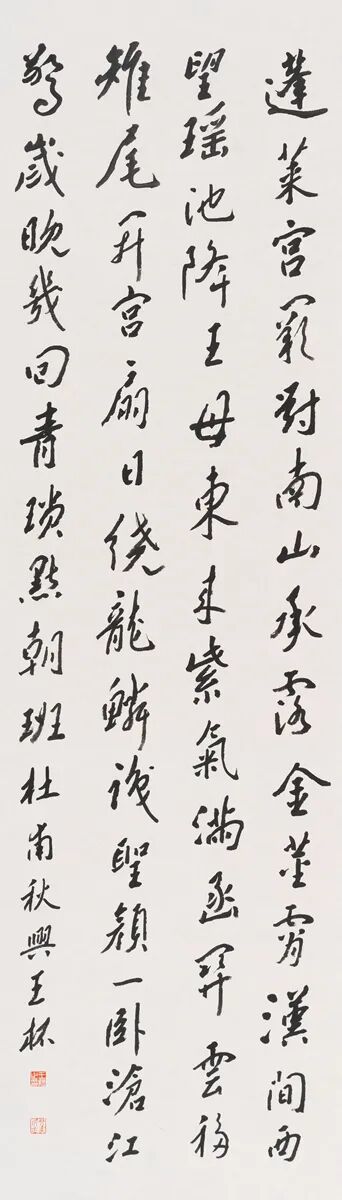 蓬萊宫闕對南山承露金莖霄漢間西
望瑶池降王母東来紫氣滿函関雲移
雉尾開宫扇日繞龍鱗識聖顔一卧滄江
驚歲晚幾回青瑣點朝班杜甫秋興王